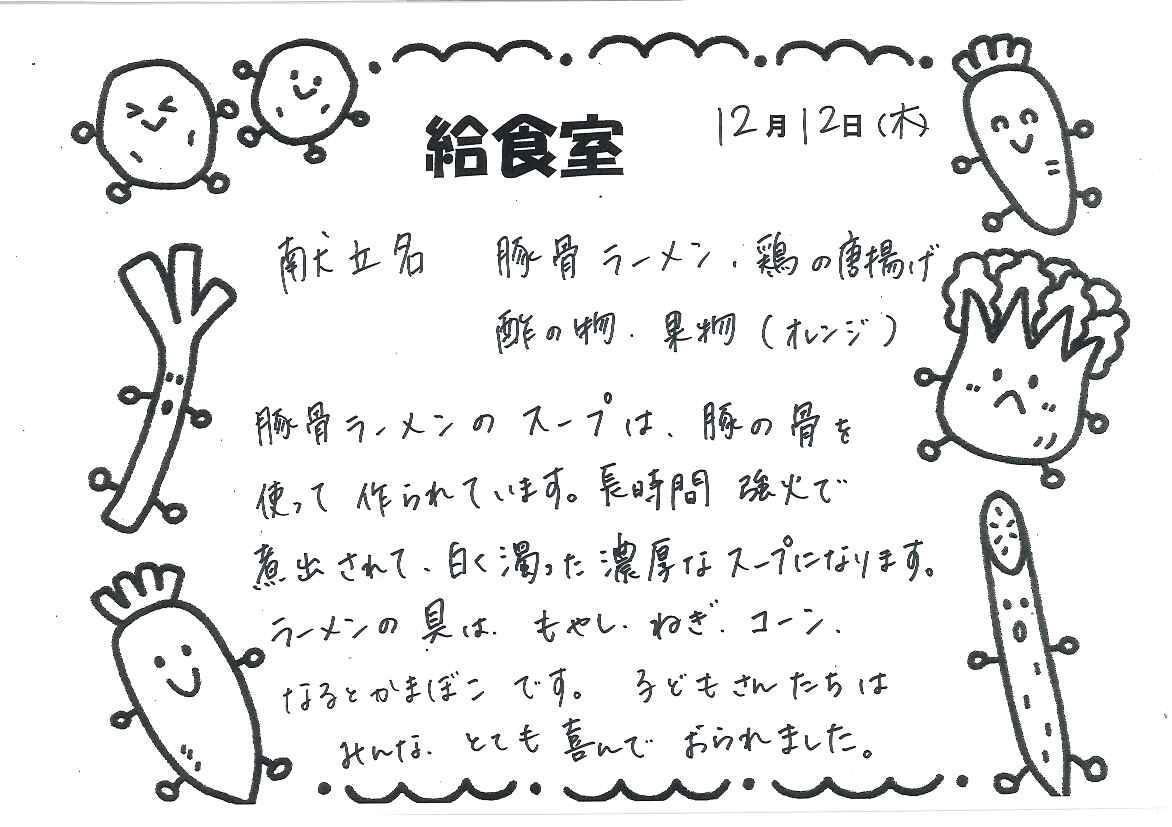 給食室
12月12日(木)
献立名 豚骨ラーメン、鶏の唐揚げ
酢の物、果物(オレンジ)
豚骨ラーメンのスープは、豚の骨を
使って作られています。長時間強火で
煮出されて、白く濁った濃厚なスープになります。
ラーメンの具は、もやし、ねぎ、コーン、
なるとかまぼこです。子どもさんたちは
みんな、とても喜んでおられました。